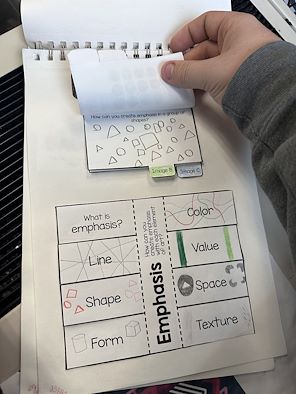 How can you create emphasis in a group of
shapes?
Image B
Image C
What is
emphasis?
Line
Shape
Form
Emphasis
How can you
create emphasis
with each element
of art?
Color
Value
Space
Texture